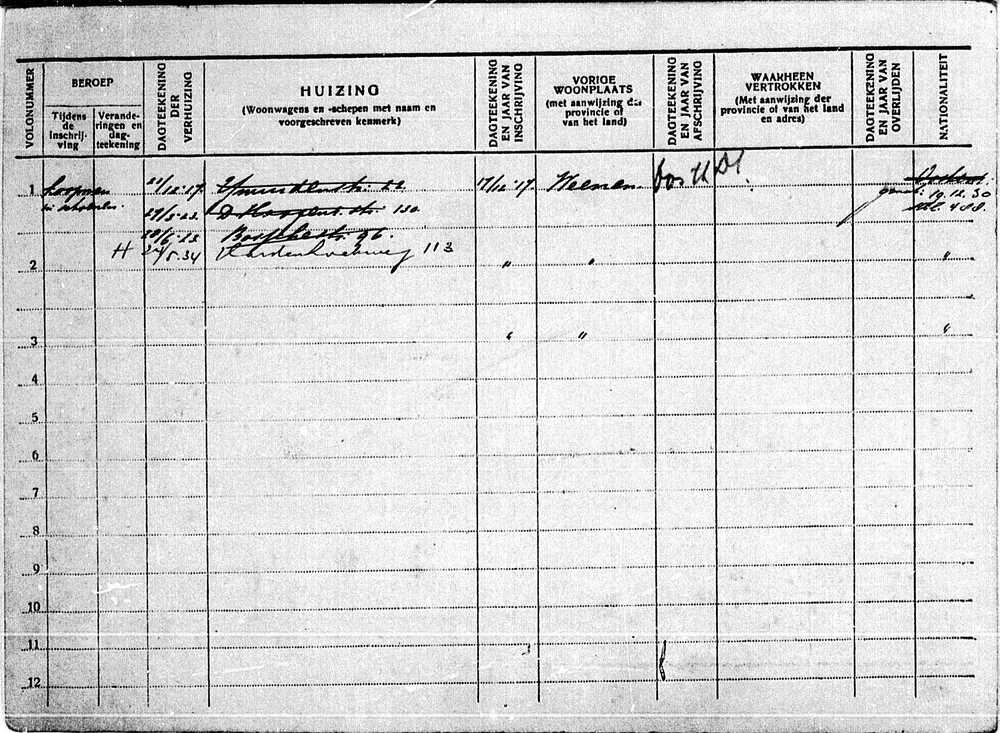 VOLGNUMMER
BEROEP
Tijdens de inschrijving
Veranderingen en dagteekening
DAGTEEKENING DER VERHUIZING
HUIZING
(Woonwagens en -schepen met naam en
voorgeschreven kenmerk)
DAGTEEKENING EN JAAR VAN INSCHRIJVING
VORIGE
WOONPLAATS
(met aanwijzing der
provincie of
van het land)
DAGTEEKENING EN JAAR VAN AFSCHRIJVING
WAARHEEN
VERTROKKEN
(Met aanwijzing der
provincie of van het land
en adres)
DAGTEEKENING EN JAAR VAN OVERLIJDEN
NATIONALITEIT
1 koopman 21/12.'17. IJmuidenstr. 22 17/12 '17. Weenen.
19.12.30
29/5.23. 130
488.
28/6.23 Boschestr. 96.
2 H 24/5.34 113 " " "
3 " " "
4
5
6
7
8
9
10
11
12